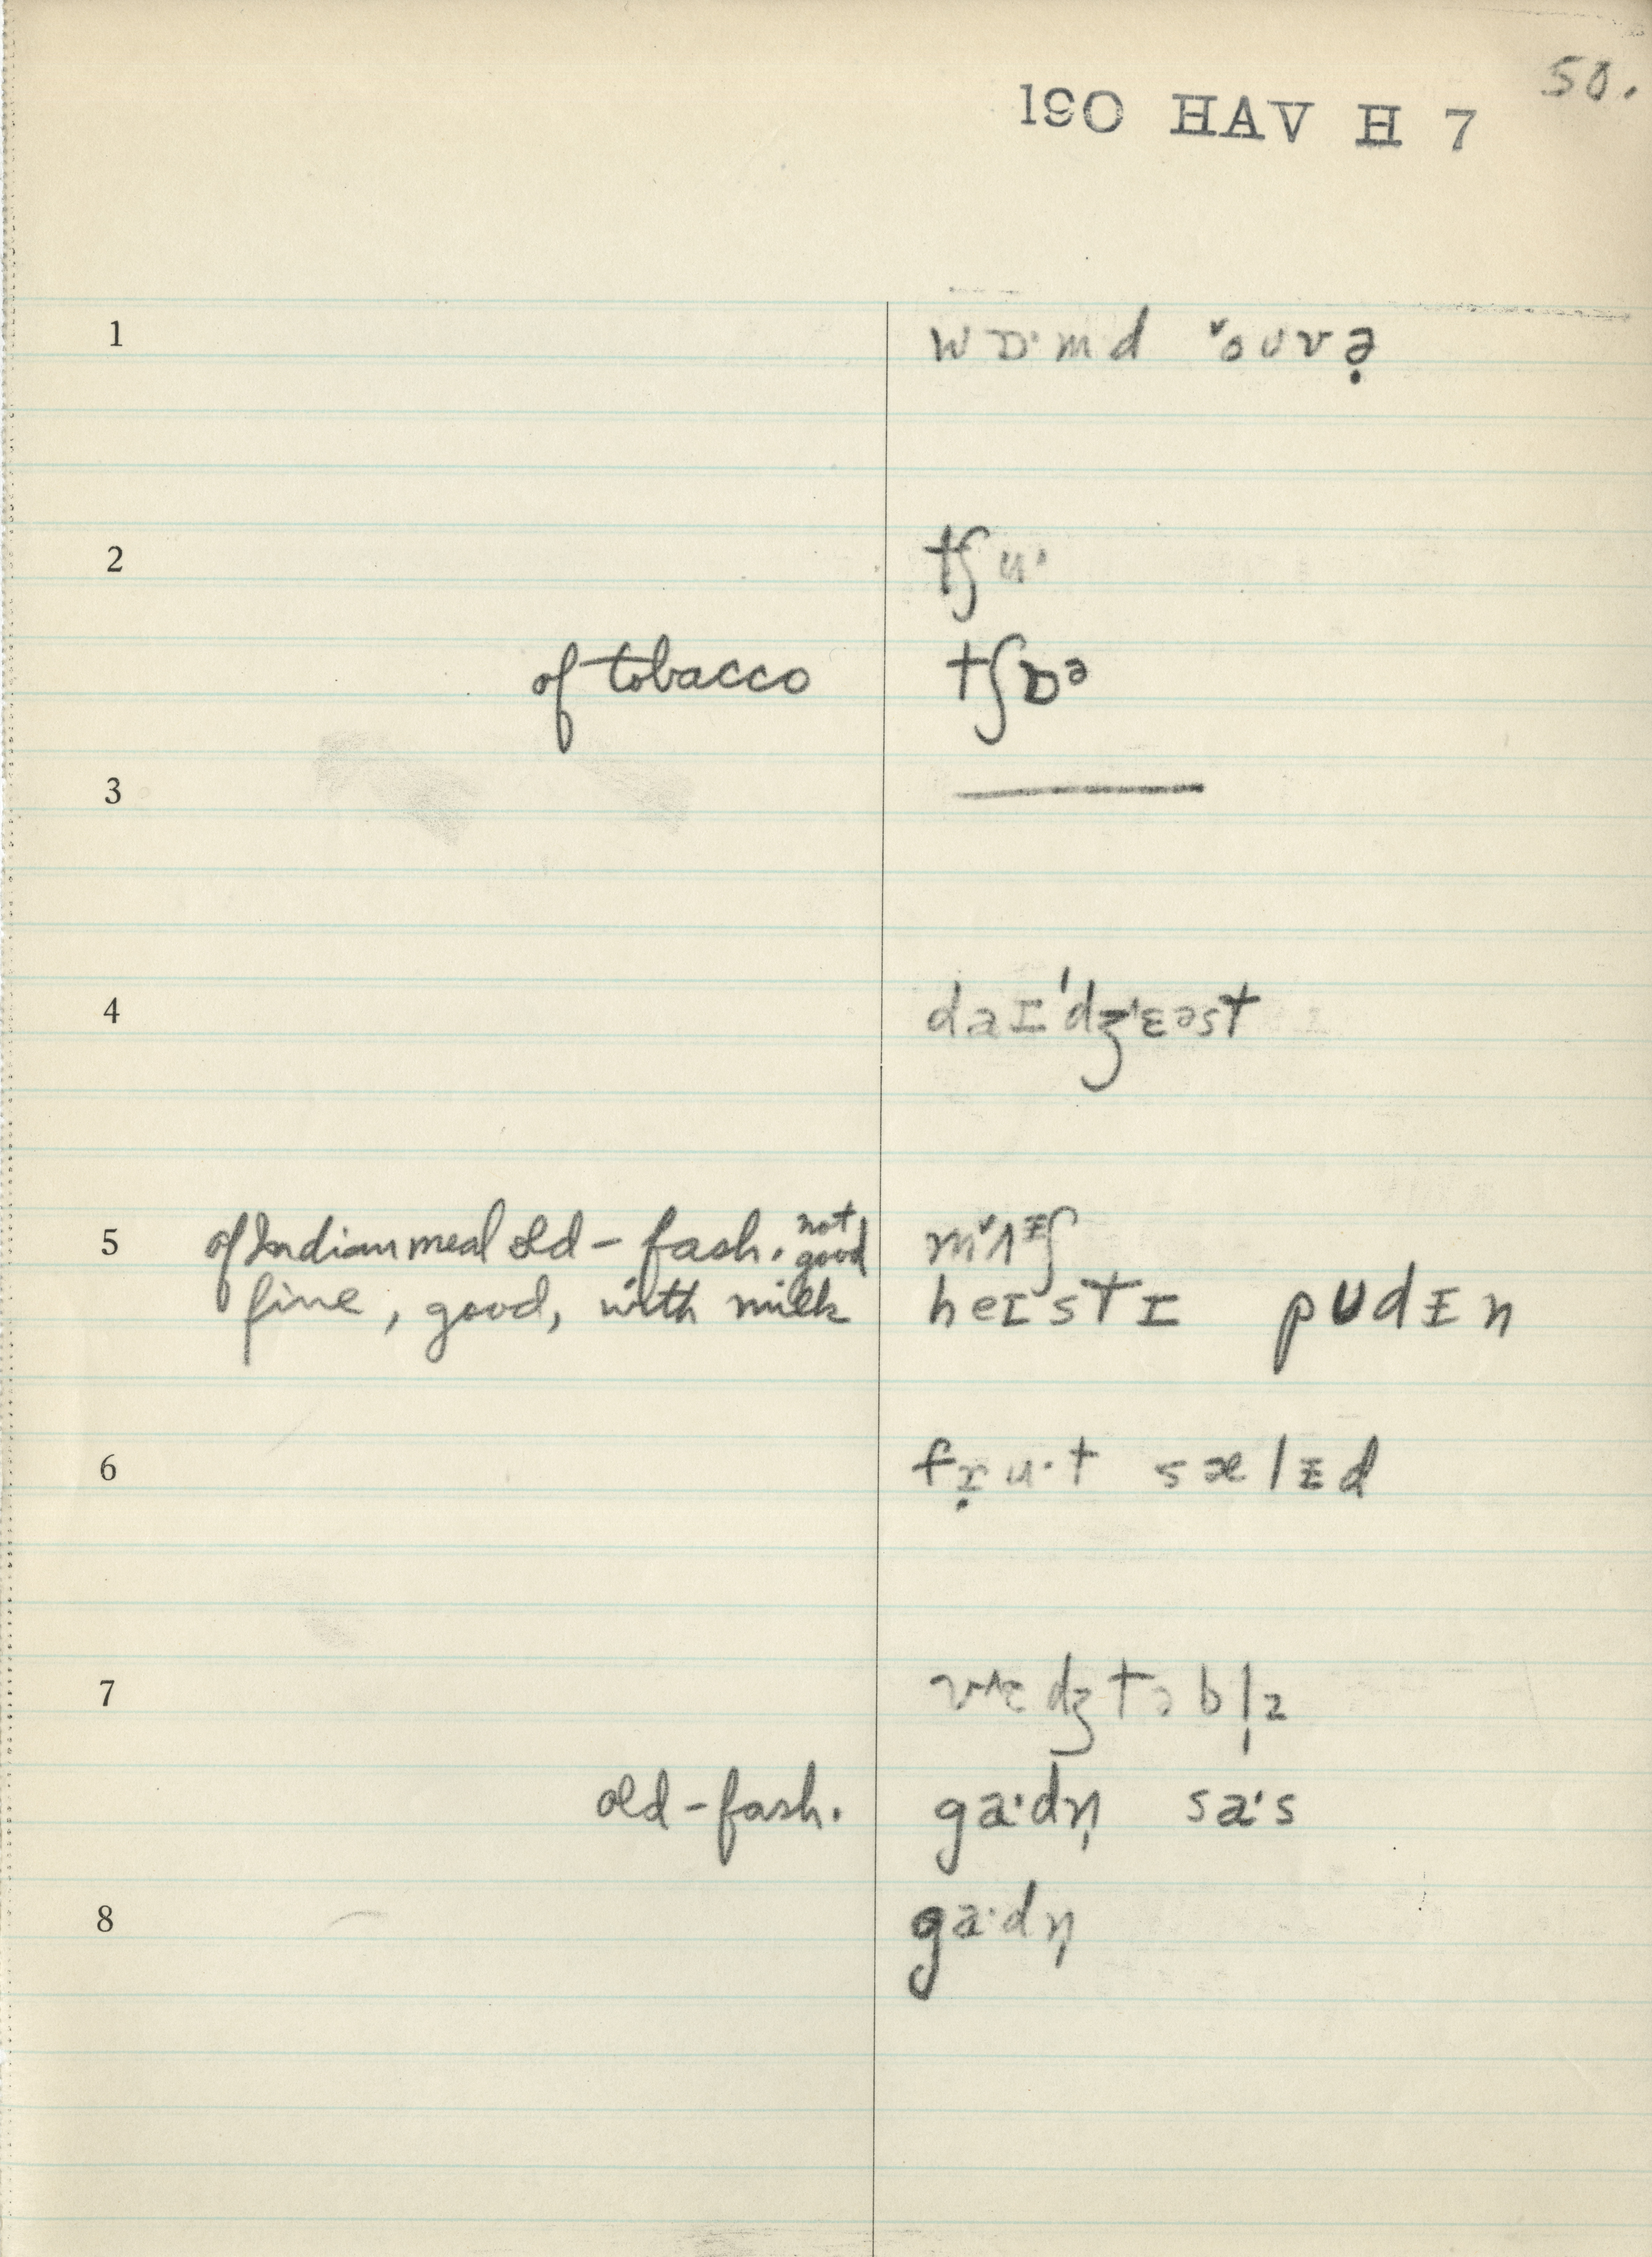 50.
190 HAV H 7
1 wɒ·md ˇouvə̣
2 tʃu·
of tobacco tʃɒᵊ
3 ———
4 daɪˈdʒ'ɛəst
5 of Indian meal old-fash. not good mˇʌᵻʃ
fine, good, with milk heɪstɪ pudᵻn
6 fɾ̣u·t sælᵻd
7 v^ɛdʒtəbl̩z
old-fash. ga·dn̩ sa·s
8 ga·dn̩